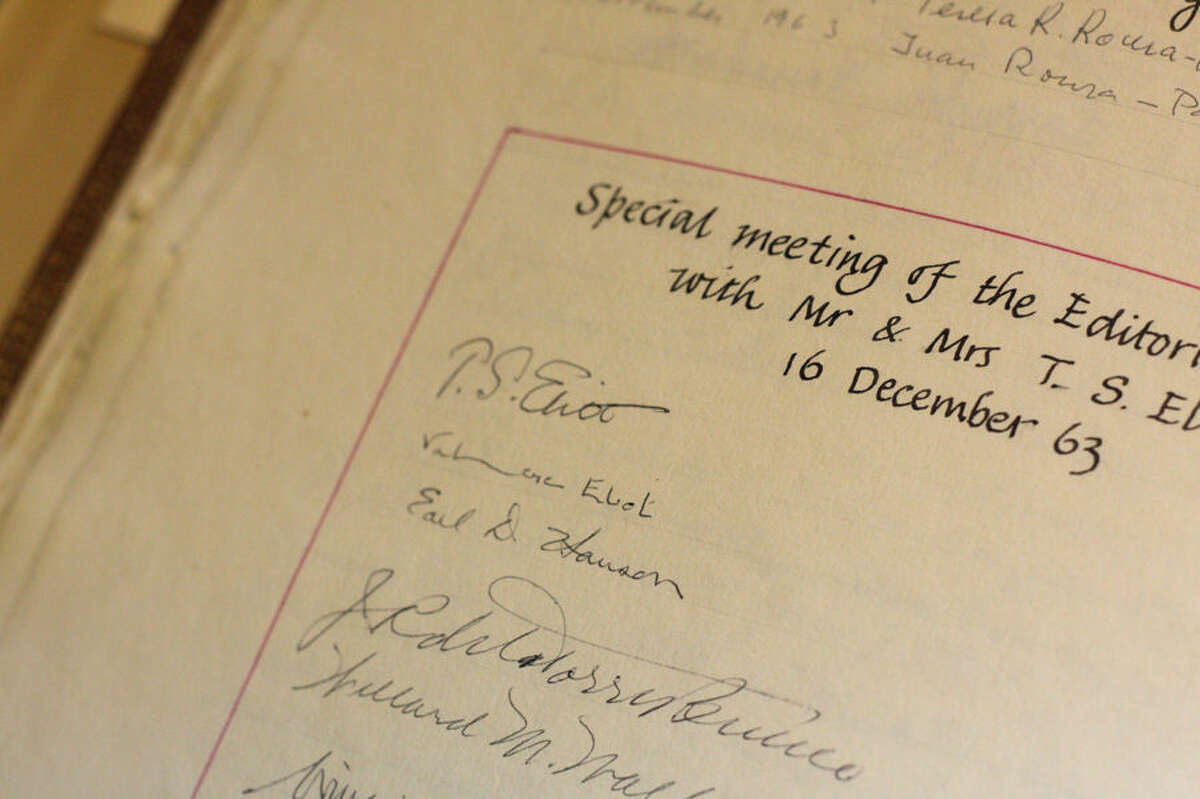 Teresa R. Roura-
1963 Juan Roura – Pa
Special meeting of the Editori
with Mr & Mrs T. S. El
16 December 63
T. S. Eliot
Valerie Eliot
Earl D. Hanson
Willard M. Wal